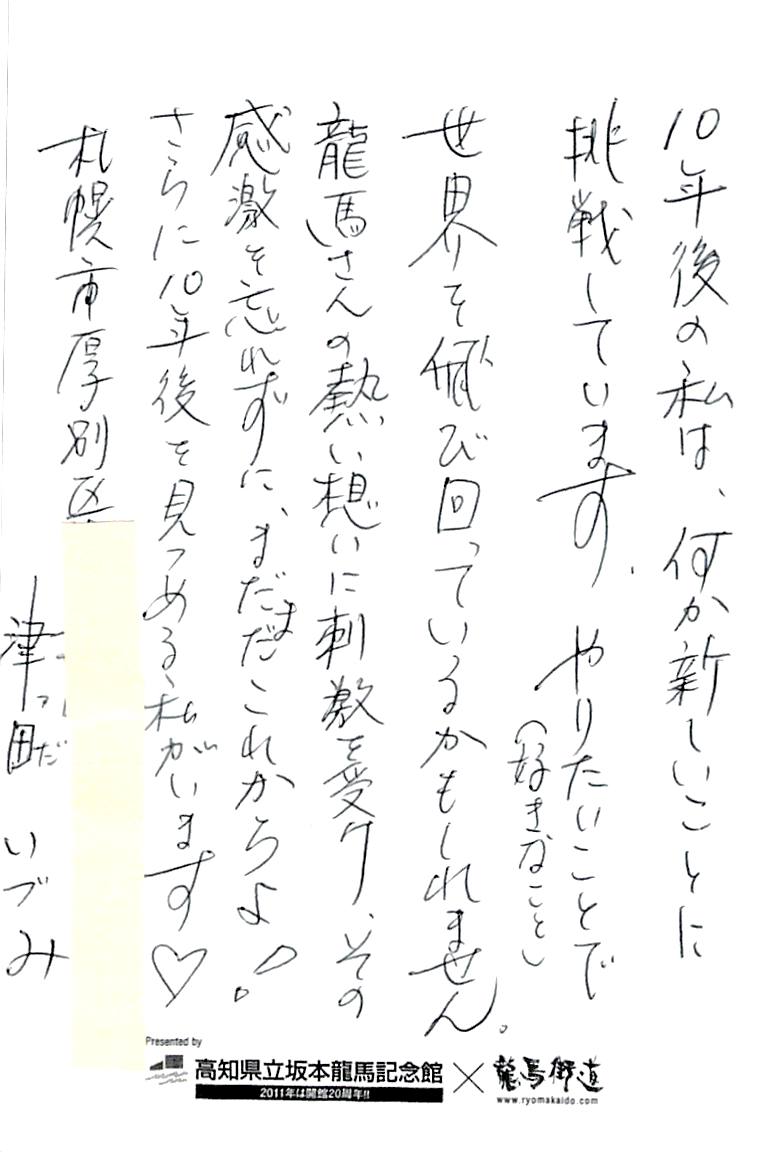 10年後の私は、何か新しいことに
挑戦しています。やりたいことで
(好きなこと)
世界を飛び回っているかもしれません。
龍馬さんの熱い想いに刺激を受け、その
感激を忘れずに、まだまだこれからよ!
さらに10年後を見つめる私がいます♡
札幌市厚別区
津田 いづみ
つだ
Presented by
高知県立坂本龍馬記念館×龍馬街道
2011年は開館20周年!!
www.ryomakaido.com